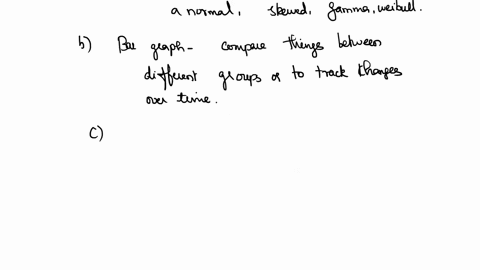 a normal, skewed, gamma, weibull.
b) Bar graph - compare things between
different groups or to track changes
over time.
c)